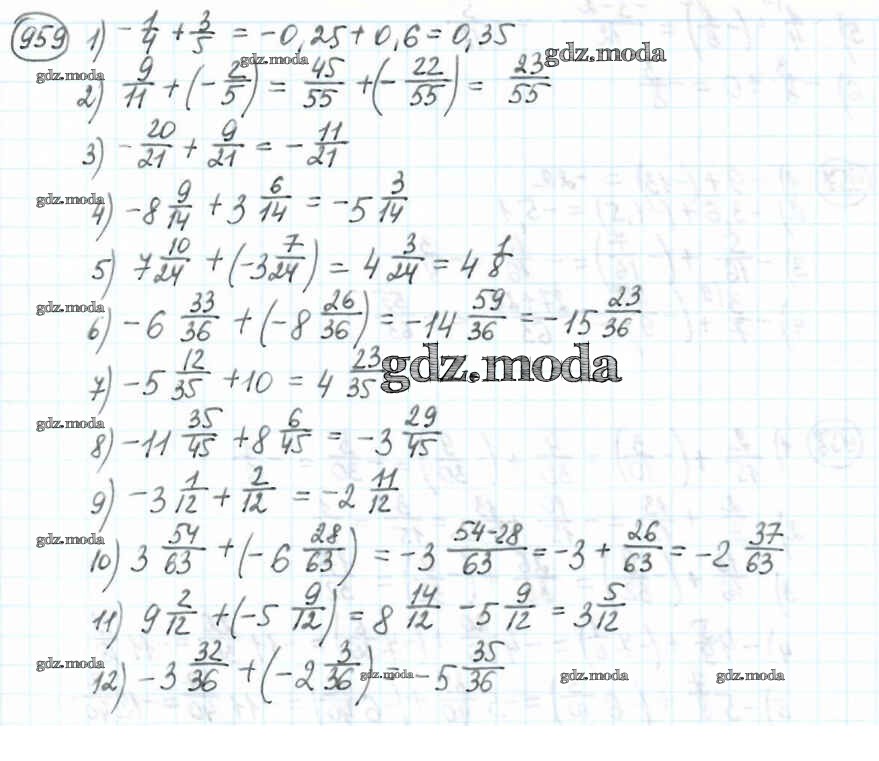 959 1) -1/4 + 3/5 = -0,25 + 0,6 = 0,35
gdz.moda gdz.moda gdz.moda
2) 9/11 + (-2/5) = 45/55 + (-22/55) = 23/55
3) -20/21 + 9/21 = -11/21
gdz.moda
4) -8 9/14 + 3 6/14 = -5 3/14
5) 7 10/24 + (-3 7/24) = 4 3/24 = 4 1/8
gdz.moda
6) -6 33/36 + (-8 26/36) = -14 59/36 = -15 23/36
7) -5 12/35 + 10 = 4 23/35
gdz.moda
gdz.moda
8) -11 35/45 + 8 6/45 = -3 29/45
9) -3 1/12 + 2/12 = -2 11/12
gdz.moda
10) 3 54/63 + (-6 28/63) = -3 54-28/63 = -3 + 26/63 = -2 37/63
11) 9 2/12 + (-5 9/12) = 8 14/12 - 5 9/12 = 3 5/12
gdz.moda
12) -3 32/36 + (-2 3/36) = -5 35/36
gdz.moda gdz.moda gdz.moda